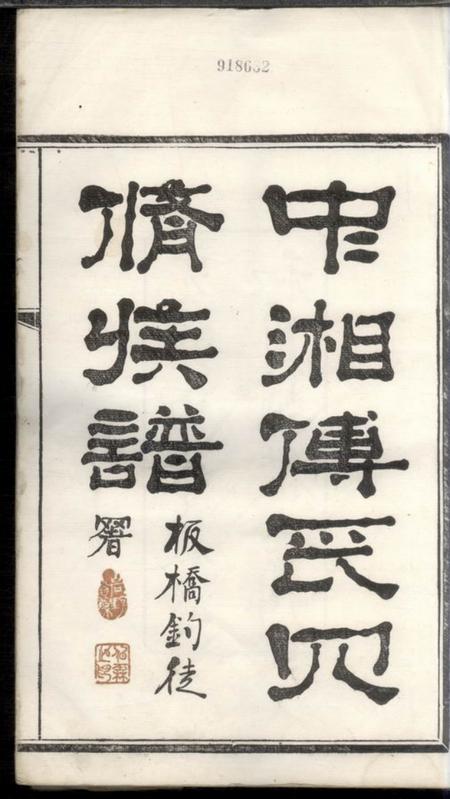 918632
中湘傅氏四
脩族譜
板橋釣徒
署